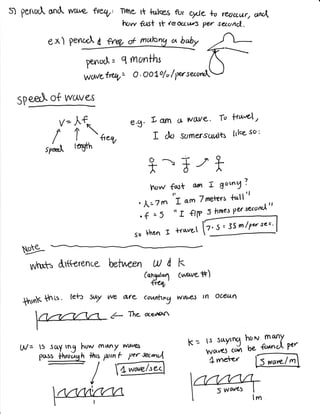 5) period and wave freq: Time it takes for cycle to reoccur, and
how fast it reoccurs per second.
ex) period & freq of making a baby
period = 9 months
wave freq = 0.001%/per second
speed of waves
v = λf
speed
length
freq
e.g. I am a wave. To travel,
I do somersaults like so:
how fast am I going?
• λ = 7m "I am 7 meters tall"
• f = 5 "I flip 5 times per second"
so then I travel 7·5 = 35 m/per sec.
Note
whats difference between W & k
(angular freq
(wave #)
think this. lets say we are counting waves in ocean
← The ocean
W = is saying how many waves
pass through this point per second
1 wave/sec
k = is saying how many
waves can be found per
1 meter
5 wave/m
5 waves
1m